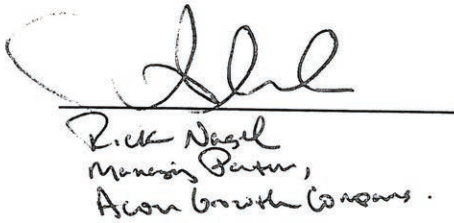 Rick Nagel
Managing Partner,
Acorn Growth Companies.